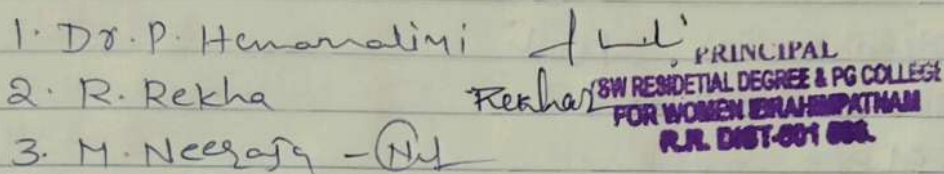 1. Dr. P. Hemanalini
PRINCIPAL
2. R. Rekha Rekha
SW RESIDETIAL DEGREE & PG COLLEGE
FOR WOMEN IBRAHIMPATNAM
3. M. Neeraja -
R.R. DIST-501